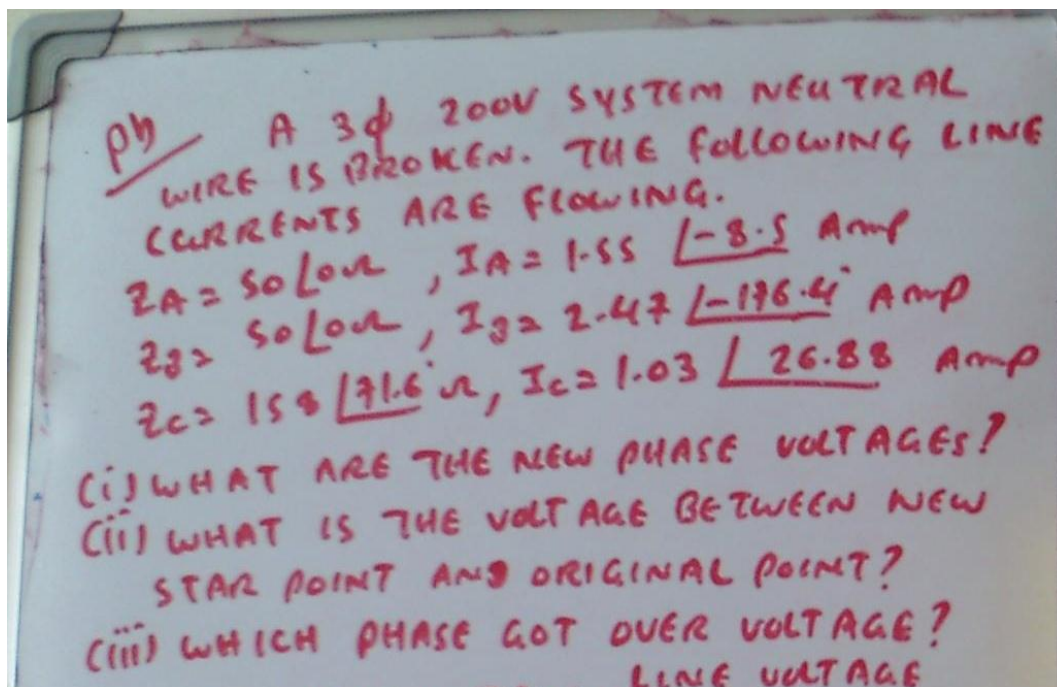 Pb A 3ϕ 200V SYSTEM NEUTRAL
WIRE IS BROKEN. THE FOLLOWING LINE
CURRENTS ARE FLOWING.
ZA = 50 ∠0 Ω, IA = 1.55 ∠-8.5 Amp
ZB = 50 ∠0 Ω, IB = 2.47 ∠-176.4° Amp
ZC = 158 ∠71.6° Ω, IC = 1.03 ∠26.88 Amp
(i) WHAT ARE THE NEW PHASE VOLTAGES?
(ii) WHAT IS THE VOLTAGE BETWEEN NEW
STAR POINT AND ORIGINAL POINT?
(iii) WHICH PHASE GOT OVER VOLTAGE?
LINE VOLTAGE